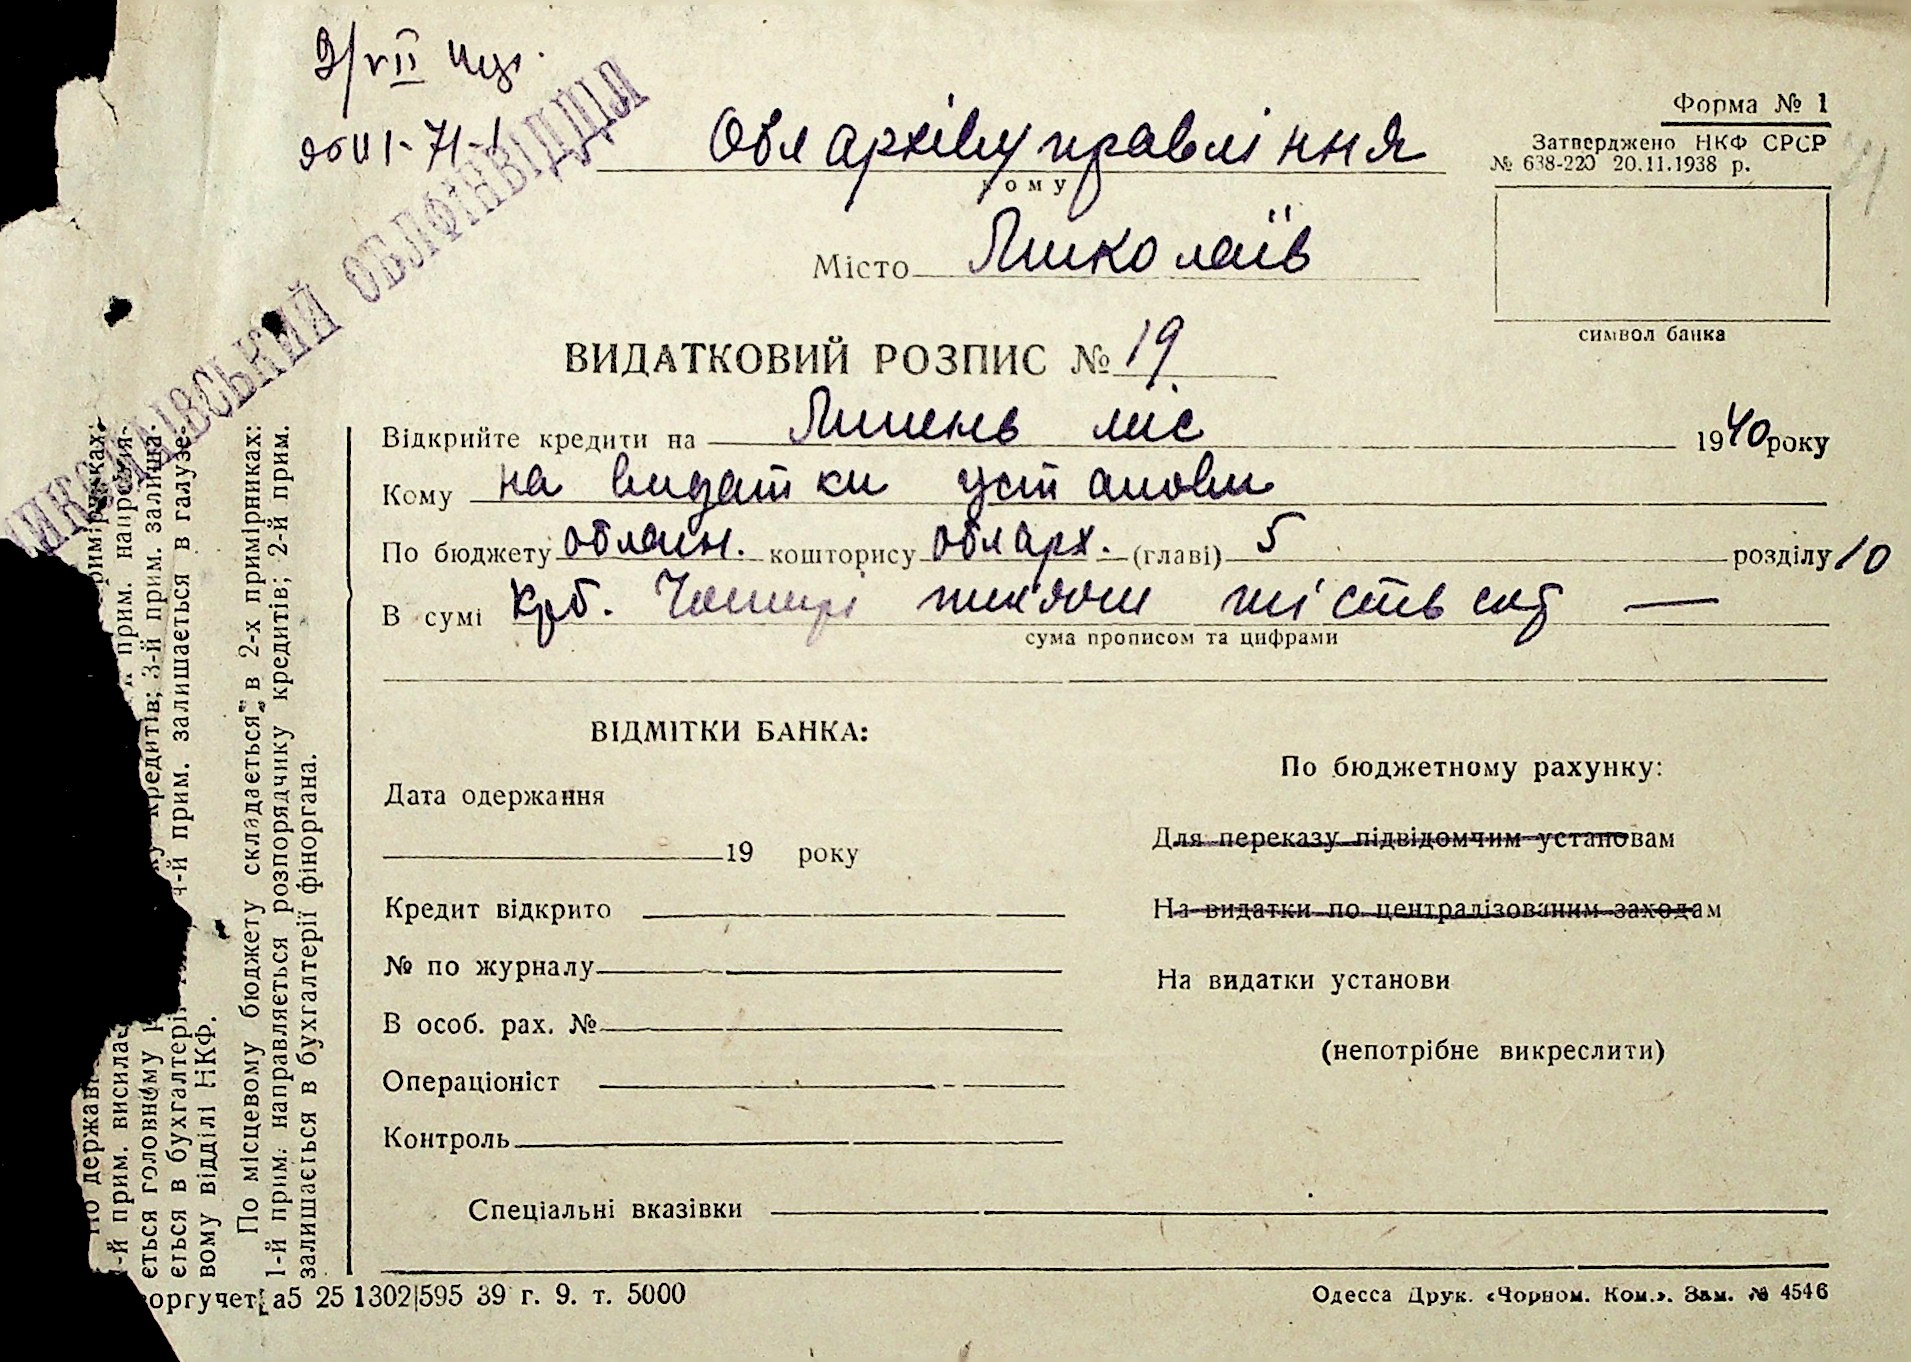 9/VII
МИКОЛАЇВСЬКИЙ ОБЛФІНВІДДІЛ
Форма № 1
Затверджено НКФ СРСР
№ 638-220 20.11.1938 р.
Облархівуправління
кому
Місто Миколаїв
символ банка
ВИДАТКОВИЙ РОЗПИС № 19
Відкрийте кредити на Липень міс 1940 року
Кому на видатки установи
По бюджету обласн. кошторису обларх. (главі) 5 розділу 10
В сумі крб. Чотири тисячі шістьсот —
сума прописом та цифрами
ВІДМІТКИ БАНКА:
Дата одержання
19 року
Кредит відкрито
№ по журналу
В особ. рах. №
Операціоніст
Контроль
По бюджетному рахунку:
Для переказу підвідомчим установам
На видатки по централізованим заходам
На видатки установи
(непотрібне викреслити)
Спеціальні вказівки
оргучет а5 25 1302|595 39 г. 9. т. 5000
Одесса Друк. «Чорном. Ком.». Зам. № 4546
По державн
1-й прим. висилає прим. направля-
ється головному кредитів; 3-й прим. залиша-
ється в бухгалтерії 4-й прим. залишається в галузе-
вому відділі НКФ.
По місцевому бюджету складається в 2-х примірниках:
1-й прим. направляється розпорядчику кредитів; 2-й прим.
залишається в бухгалтерії фіноргана.